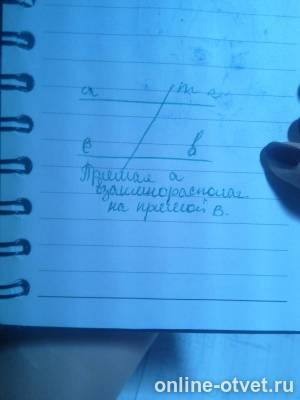 a m
в b
Прямая а
взаиморасполож
на прямой в.
online-otvet.ru